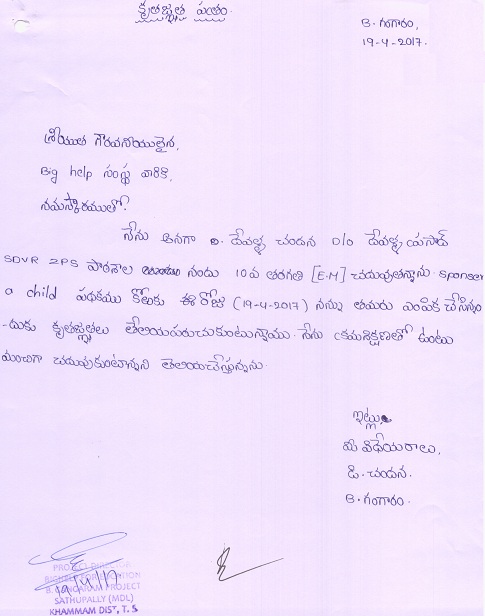 కృతజ్ఞత పత్రం.
B. గంగారం,
19-4-2017.
శ్రీయుత గౌరవనీయులైన,
Big help సంస్థ వారికి,
నమస్కారములతో!
నేను అనగా D. దేవళ్ళ చందన D/o దేవళ్ళ ప్రసాద్
SDVR ZPS పాఠశాల నందు 10వ తరగతి [E.M] చదువుతున్నాను. sponser
a child పథకము కొరకు ఈ రోజు (19-4-2017) నన్ను తమరు ఎంపిక చేసినం
-దుకు కృతజ్ఞతలు తెలియపరుచుకుంటున్నాము. నేను క్రమశిక్షణతో ఉంటు
మంచిగా చదువుకుంటానని తెలియచేస్తున్నను.
ఇట్లు,
మీ విధేయరాలు,
డి. చందన.
B. గంగారం.
PROJECT DIRECTOR
B. GANGARAM PROJECT
SATHUPALLY (MDL)
KHAMMAM DIST, T. S